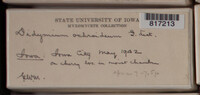 STATE UNIVERSITY OF IOWA
MYXOMYCETE COLLECTION
817213
Didymium ochroideum G. List.
Iowa: Iowa City May 1942
on cherry log in moist chamber
GWM.